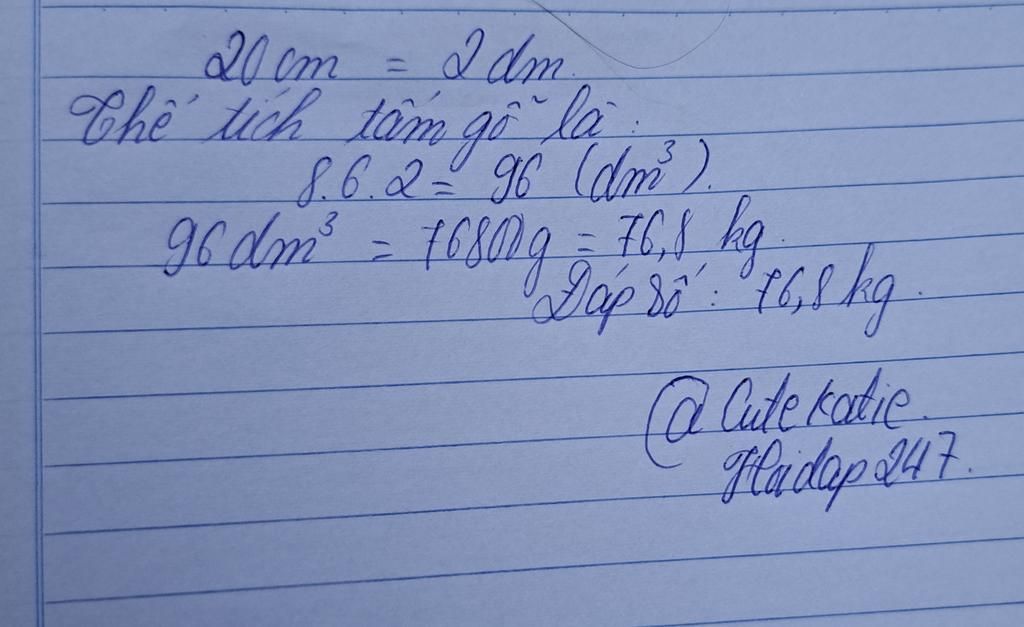 20 cm = 2 dm.
Thế tích tấm gỗ là :
8.6.2 = 96 (dm³).
96 dm³ = 76800g = 76,8 kg.
Đáp số : 76,8 kg.
@Cutekatie.
Hoidap247.